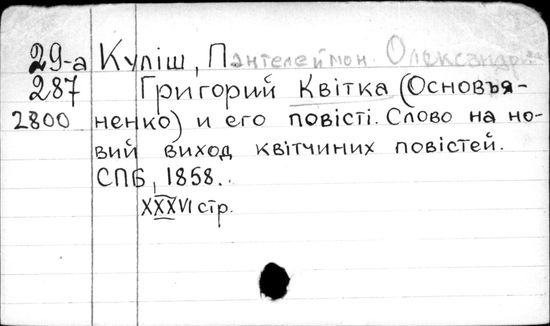 29-а Куліш, Пантелеймон Олександр.
287 Григорий Квітка (Основъя-
2800 ненко) и его повісті. Слово на но-
вий виход квітчиних повістей.
СПБ, 1858..
XXXVI стр.